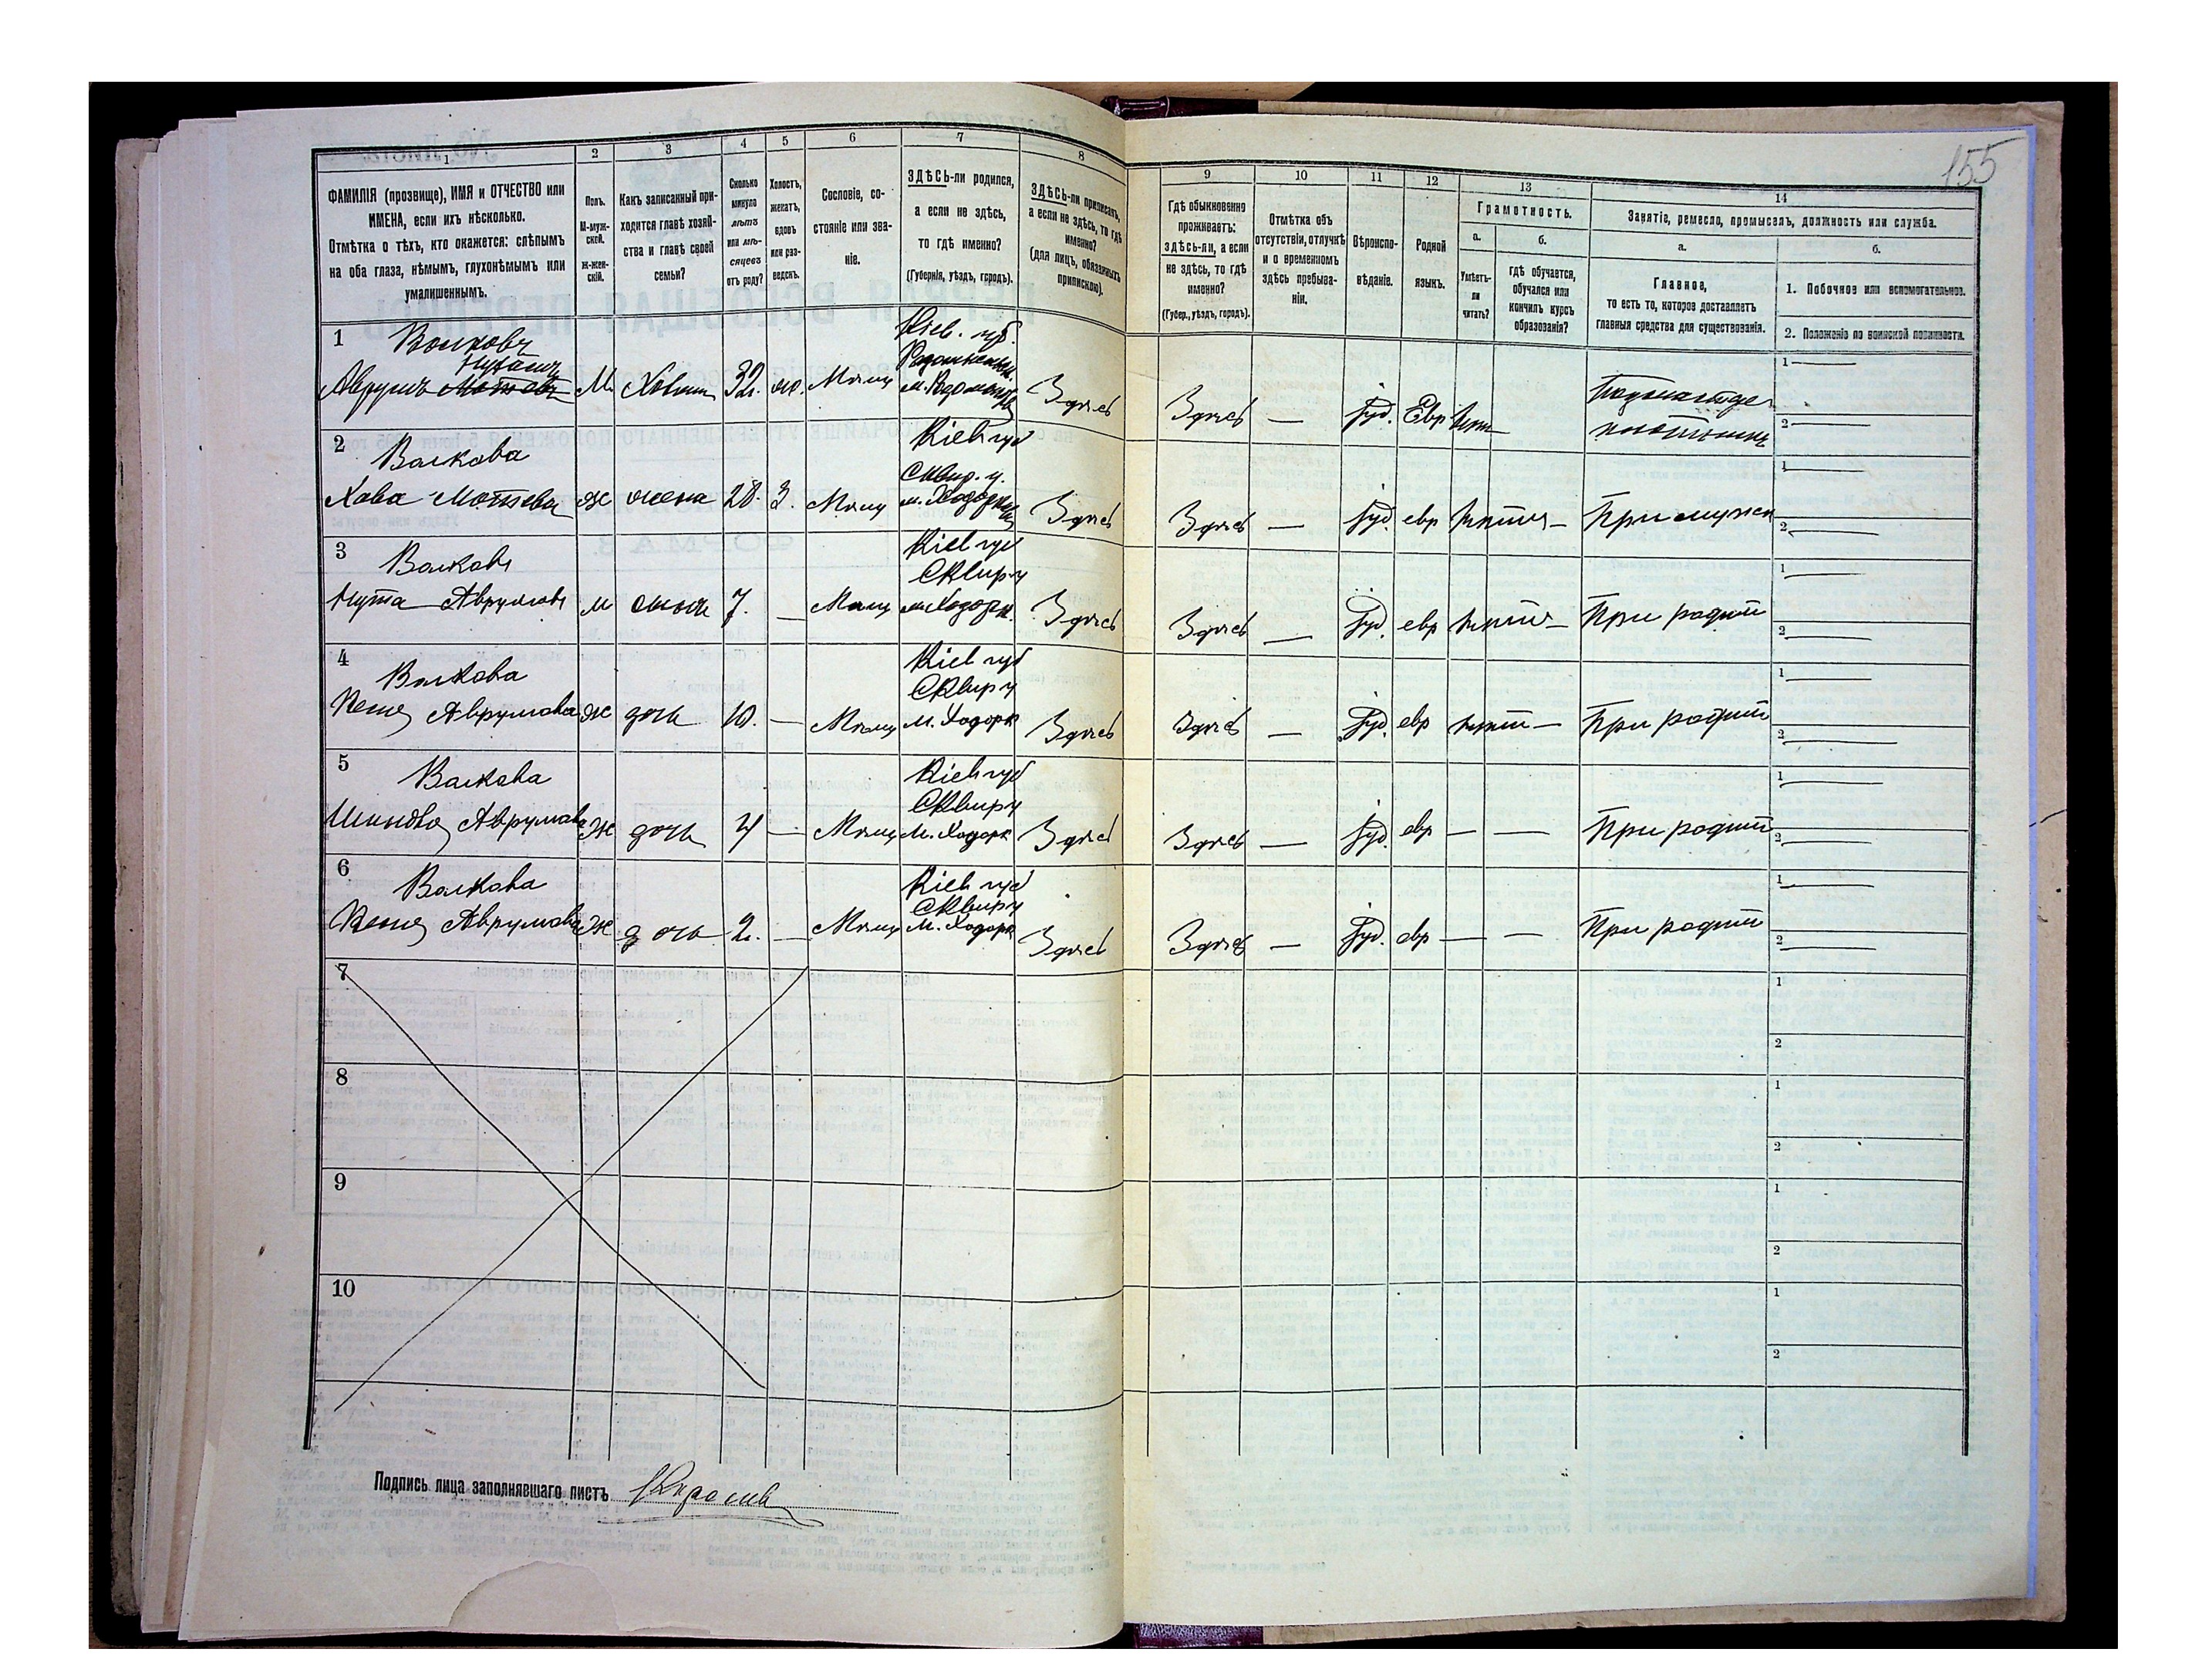 155
1 2 3 4 5 6 7 8 9 10 11 12 13 14
ФАМИЛІЯ (прозвище), ИМЯ и ОТЧЕСТВО или
ИМЕНА, если ихъ нѣсколько.
Отмѣтка о тѣхъ, кто окажется: слѣпымъ
на оба глаза, нѣмымъ, глухонѣмымъ или
умалишеннымъ.
Полъ.
М-муж-
ской.
ж-жен-
скій.
Какъ записанный при-
ходится главѣ хозяй-
ства и главѣ своей
семьи?
Сколько
минуло
лѣтъ
или мѣ-
сяцевъ
отъ роду?
Холостъ,
женатъ,
вдовъ
или раз-
веденъ.
Сословіе, со-
стояніе или зва-
ніе.
ЗДѢСЬ-ли родился,
а если не здѣсь,
то гдѣ именно?
(Губернія, уѣздъ, городъ).
ЗДѢСЬ-ли приписанъ,
а если не здѣсь, то гдѣ
именно?
(для лицъ, обязанныхъ
припискою).
Гдѣ обыкновенно
проживаетъ:
здѣсь-ли, а если
не здѣсь, то гдѣ
именно?
(Губер., уѣздъ, городъ).
Отмѣтка объ
отсутствіи, отлучкѣ
и о временномъ
здѣсь пребыва-
ніи.
Вѣроиспо-
вѣданіе.
Родной
языкъ.
Грамотность.
а.
Умѣетъ-
ли
читать?
б.
гдѣ обучается,
обучался или
кончилъ курсъ
образованія?
Занятіе, ремесло, промыселъ, должность или служба.
а.
Главное,
то есть то, которое доставляетъ
главныя средства для существованія.
б.
1. Побочное или вспомогательное.
2. Положеніе по воинской повинности.
1 Волковъ Кіев. губ.
Нутовъ Радомысльск.
Аврумъ Мотьевъ М Хозяин 32. ж. Мѣщ Здѣсь Здѣсь — Іуд. Евр 1— 2—
2 Волкова Кіев губ
Сквир. у.
Хава Мотьева Ж жена 28. З. Мѣщ м. Ходорк Здѣсь Здѣсь — Іуд. евр — При мужѣ 1— 2—
3 Волковъ Кіев губ
Сквир у
Нута Аврумовъ М сынъ 7. — Мѣщ м. Ходорк. Здѣсь Здѣсь — Іуд. евр — При родит 1— 2—
4 Волкова Кіев губ
Сквир у
Аврумова Ж дочь 10. — Мѣщ м. Ходорк Здѣсь Здѣсь — Іуд. евр — При родит 1— 2—
5 Волкова Кіев губ
Сквир у
Аврумова Ж дочь 4 — Мѣщ м. Ходорк Здѣсь Здѣсь — Іуд. евр — — При родит 1— 2—
6 Волкова Кіев губ
Сквир у
Аврумова Ж дочь 2. — Мѣщ м. Ходорк Здѣсь Здѣсь — Іуд. евр — — При родит 1— 2—
7 1
2
8 1
2
9 1
2
10 1
2
Подпись лица заполнявшаго листъ